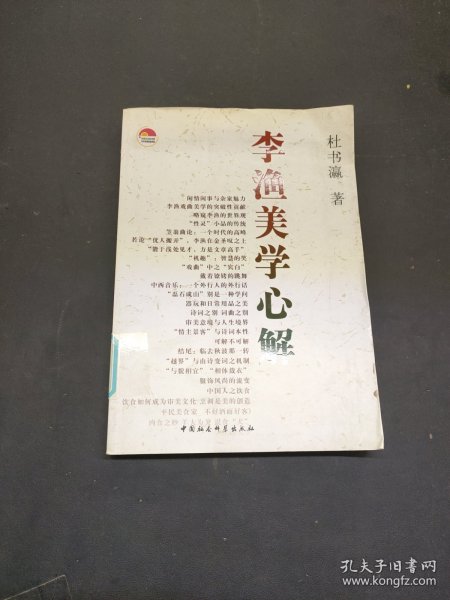 李渔美学心解
杜书瀛 著
闲情闲事与杂家魅力
李渔戏曲美学的突破性贡献
略窥李渔的世界观
“性灵”小品的传统
笠翁曲论：一个时代的高峰
若论“优人搬弄”：李渔在金圣叹之上
“能于浅处见才，方是文章高手”
“机趣”：智慧的笑
“戏曲”中之“宾白”
戴着镣铐的跳舞
中西音乐：一个外行人的外行话
“磊石成山”别是一种学问
器玩和日常用品之美
诗词之别 词曲之别
审美意境与人生境界
“情主景客”与诗词本性
可解不可解
结尾：临去秋波那一转
“越界”与由诗变词之机制
“与貌相宜”“相体裁衣”
服饰风尚的流变
中国人之饮食
饮食如何成为审美文化 烹调是美的创造
平民美食家 不好酒而好客
中国社会科学出版社
孔夫子旧书网
www.kongfz.com